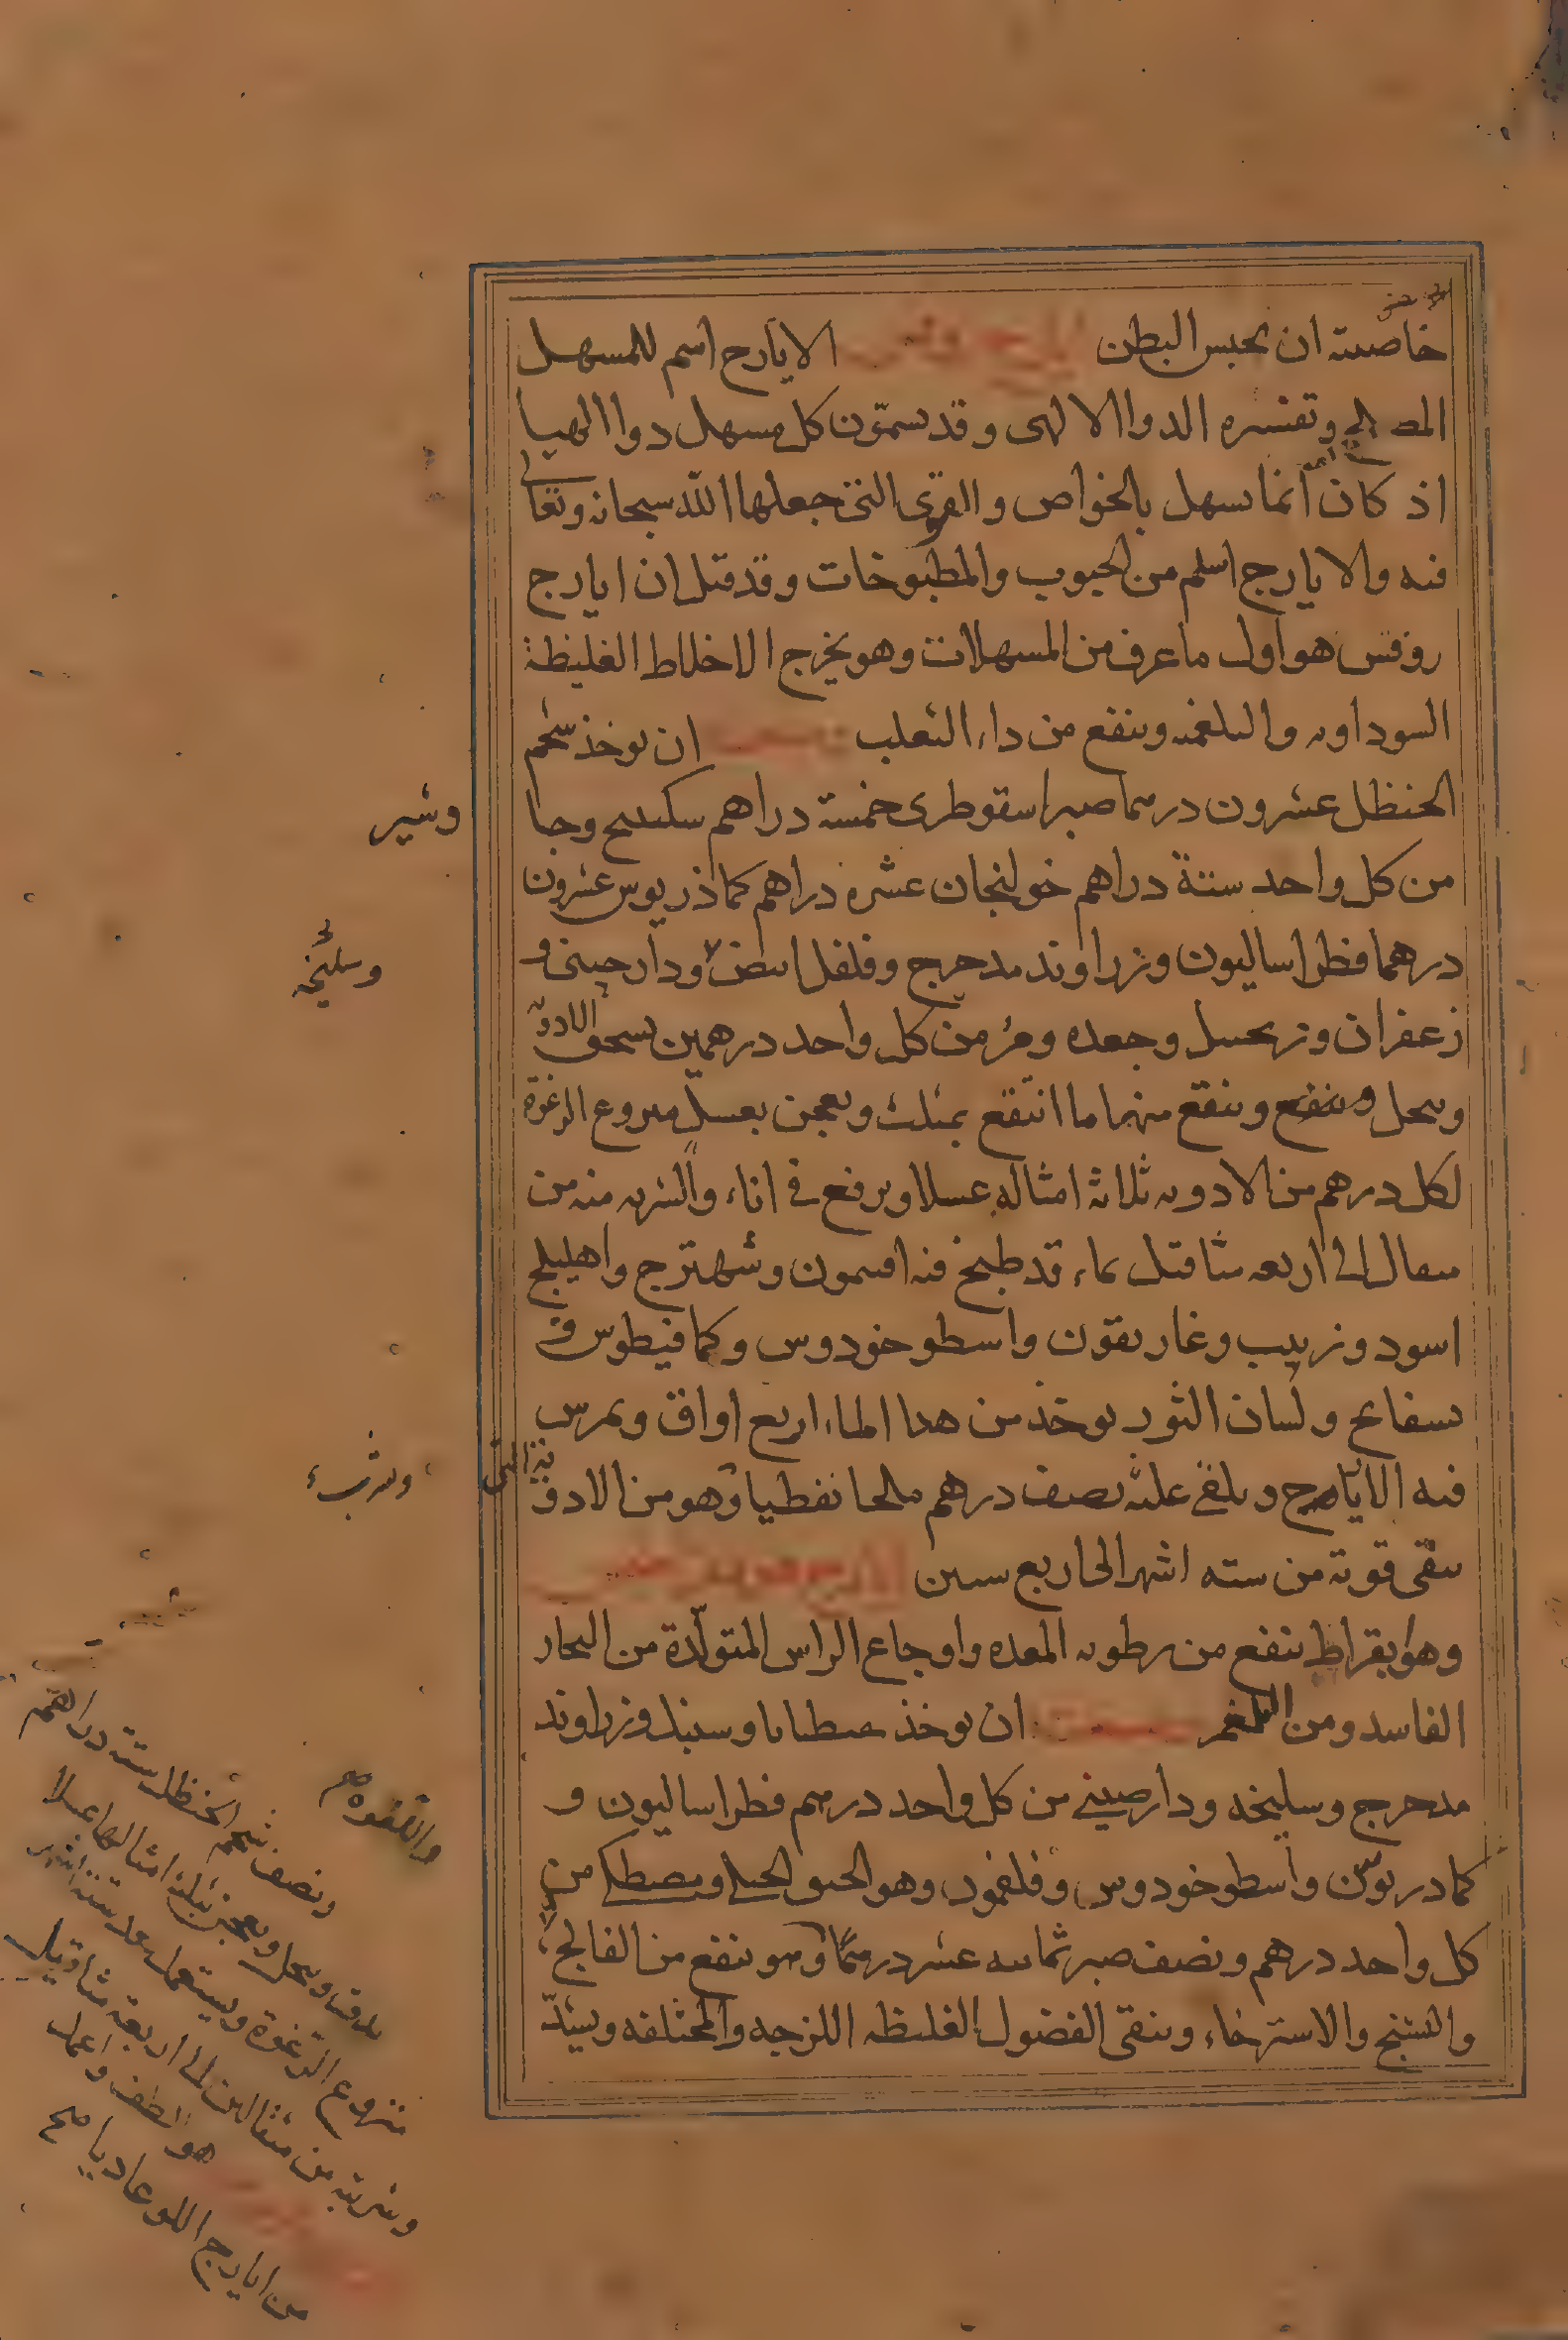 خاصيته ان يحبس البطن الايارج اسم للمسهل
المصلح وتفسيره الدوا الالهى وقد يسمّون كل مسهل دوا الهيا
اذ كان انما يسهل بالخواص والقوى التى جعلها الله سبحانه وتعالى
فيه والايارج اسلم من الحبوب والمطبوخات وقد قيل ان ايارج
روفس هو اول ما عرف من المسهلات وهو يخرج الاخلاط الغليظة
السوداويه والبلغميه وينفع من داء الثعلب ان يوخذ شحم
الحنظل عشرون درهما صبر اسقوطرى خمسة دراهم سكبينج وجا
وشير
من كل واحد ستة دراهم خولنجان عشره دراهم كماذريوس عشرون
درهما فطراساليون وزراوند مدحرج وفلفل ابيض ودارصينى و
وسليخه
زعفران وزنجبيل وجعده ومر من كل واحد درهمين يسحق الادويه
ويحل وينقع وينقع منها ما انتقع بمثلث ويعجن بعسل منزوع الرغوة
لكل درهم من الادويه ثلاثة امثاله عسلا ويرفع فى اناء والشربه منه من
مثقال الى اربعه مثاقيل بماء قد طبخ فيه افتيمون وشهترج واهليلج
اسود وزبيب وغاريقون واسطوخودوس وكمافيطوس و
بسفايج ولسان الثور يوخذ من هذا الماء اربع اواق ويمرس
فيه الايارج ويلقى عليه نصف درهم ملحا نفطيا وهو من الادوية التى
ويشرب
تبقى قوته من سته اشهر الى اربع سنين
وهو ابقراط ينفع من رطوبه المعده واوجاع الراس المتولّدة من البخار
الفاسد ومن البلغم ان يوخذ جنطيانا وسنبل وزراوند
مدحرج وسليخه ودارصينى من كل واحد درهم فطراساليون و
كمادريوس واسطوخودوس وفلفمود وهو الحبق الجبلى ومصطكى من
كل واحد درهم ونصف صبر ثمانيه عشر درهما وهو ينفع من الفالج
واللقوه صح
والتشنج والاسترخاء وينقى الفضول الغليظه اللزجه والمختلفه ويشدّ
ونصف شحم الحنظل ستة دراهم
يدق وينخل ويعجن بثلثة امثالها عسلا
منزوع الرغوة ويستعمل بعد ستة اشهر
وشربته من مثقالين الى اربعة مثاقيل
هو الطف واعمل
من ايارج اللوغاديا صح